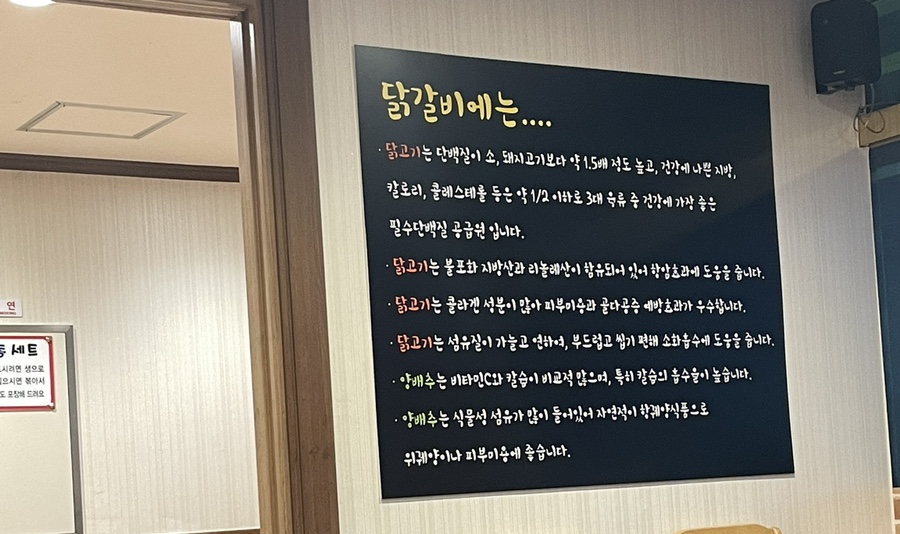 닭갈비에는....
· 닭고기는 단백질이 소, 돼지고기보다 약 1.5배 정도 높고, 건강에 나쁜 지방,
칼로리, 콜레스테롤 등은 약 1/2 이하로 3대 육류 중 건강에 가장 좋은
필수단백질 공급원 입니다.
· 닭고기는 불포화 지방산과 리놀레산이 함유되어 있어 항암효과에 도움을 줍니다.
· 닭고기는 콜라겐 성분이 많아 피부미용과 골다공증 예방효과가 우수합니다.
· 닭고기는 섬유질이 가늘고 연하여, 부드럽고 씹기 편해 소화흡수에 도움을 줍니다.
· 양배추는 비타민C와 칼슘이 비교적 많으며, 특히 칼슘의 흡수율이 높습니다.
· 양배추는 식물성 섬유가 많이 들어있어 자연적이 항궤양식품으로
위궤양이나 피부미용에 좋습니다.
연
세트
시려면 생으로
으시면 볶아서
도 포장해 드려요